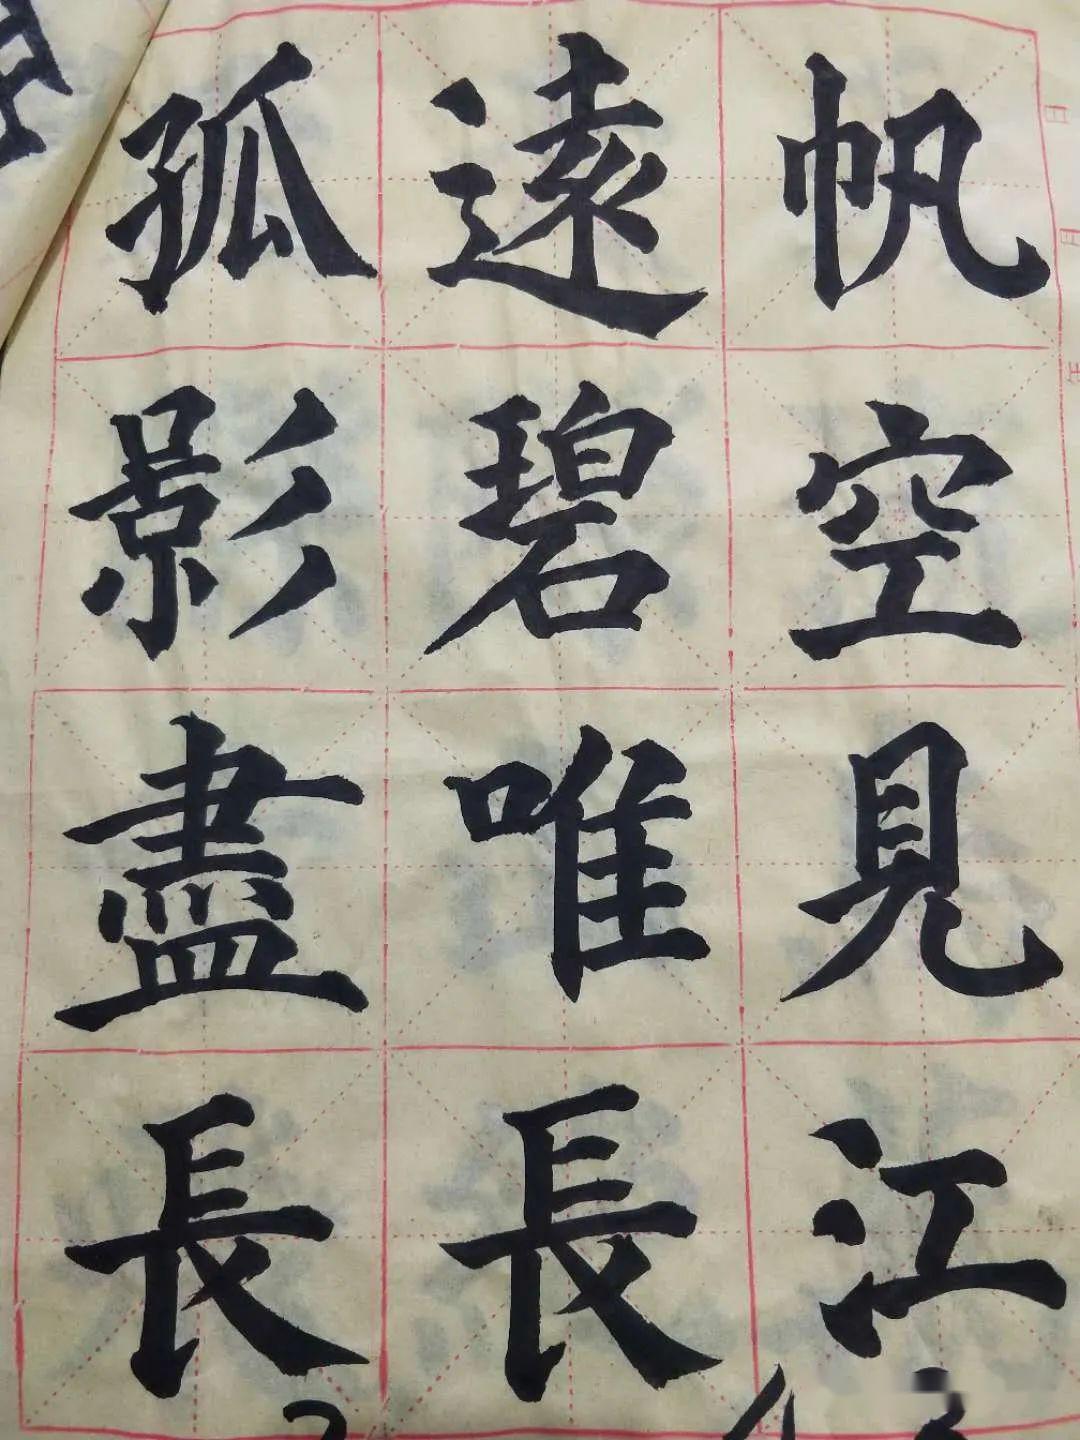 孤遠帆
影碧空
盡唯見
長長江